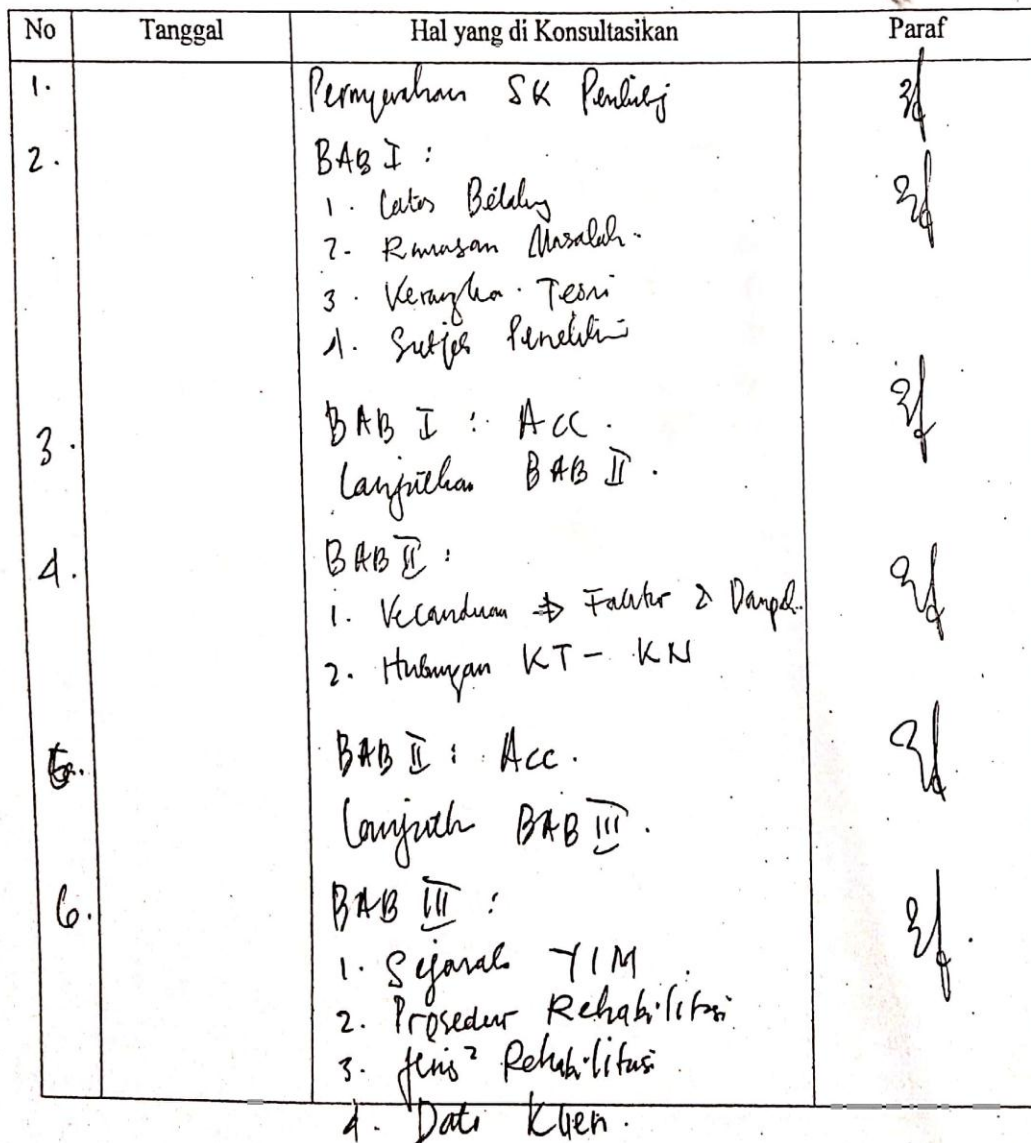 No Tanggal Hal yang di Konsultasikan Paraf
1. Penyerahan SK Pembibg
2. BAB I :
1. Latar Belakg
2. Rumusan Masalah.
3. Kerangka Teori
4. Subjek Penelitin
3. BAB I : Acc.
Lanjutkan BAB II.
4. BAB II :
1. Kecanduan ⇒ Faktor & Dampak.
2. Hubungan KT - KN
5. BAB II : Acc.
Lanjutk BAB III.
6. BAB III :
1. Sejarah YIM
2. Prosedur Rehabilitasi
3. Jenis² Rehabilitasi
4. Data Klien.